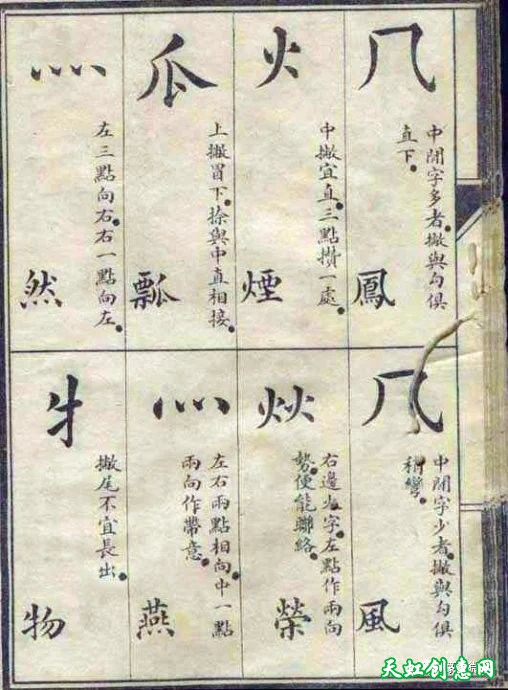 ⺇
中閒字多者。撇與勾俱
直下。
鳳
火
中撇宜直。三點攢一處。
煙
瓜
上撇冒下。捺與中直相接。
瓢
灬
左三點向右。右一點向左。
然
⺇
中閒字少者。撇與勾俱
稍彎。
風
炏
右邊火字。左點作兩向
勢。便能聯絡。
榮
灬
左右兩點相向。中一點
兩向作帶意。
燕
牜
撇尾不宜長出。
物
天虹创意网